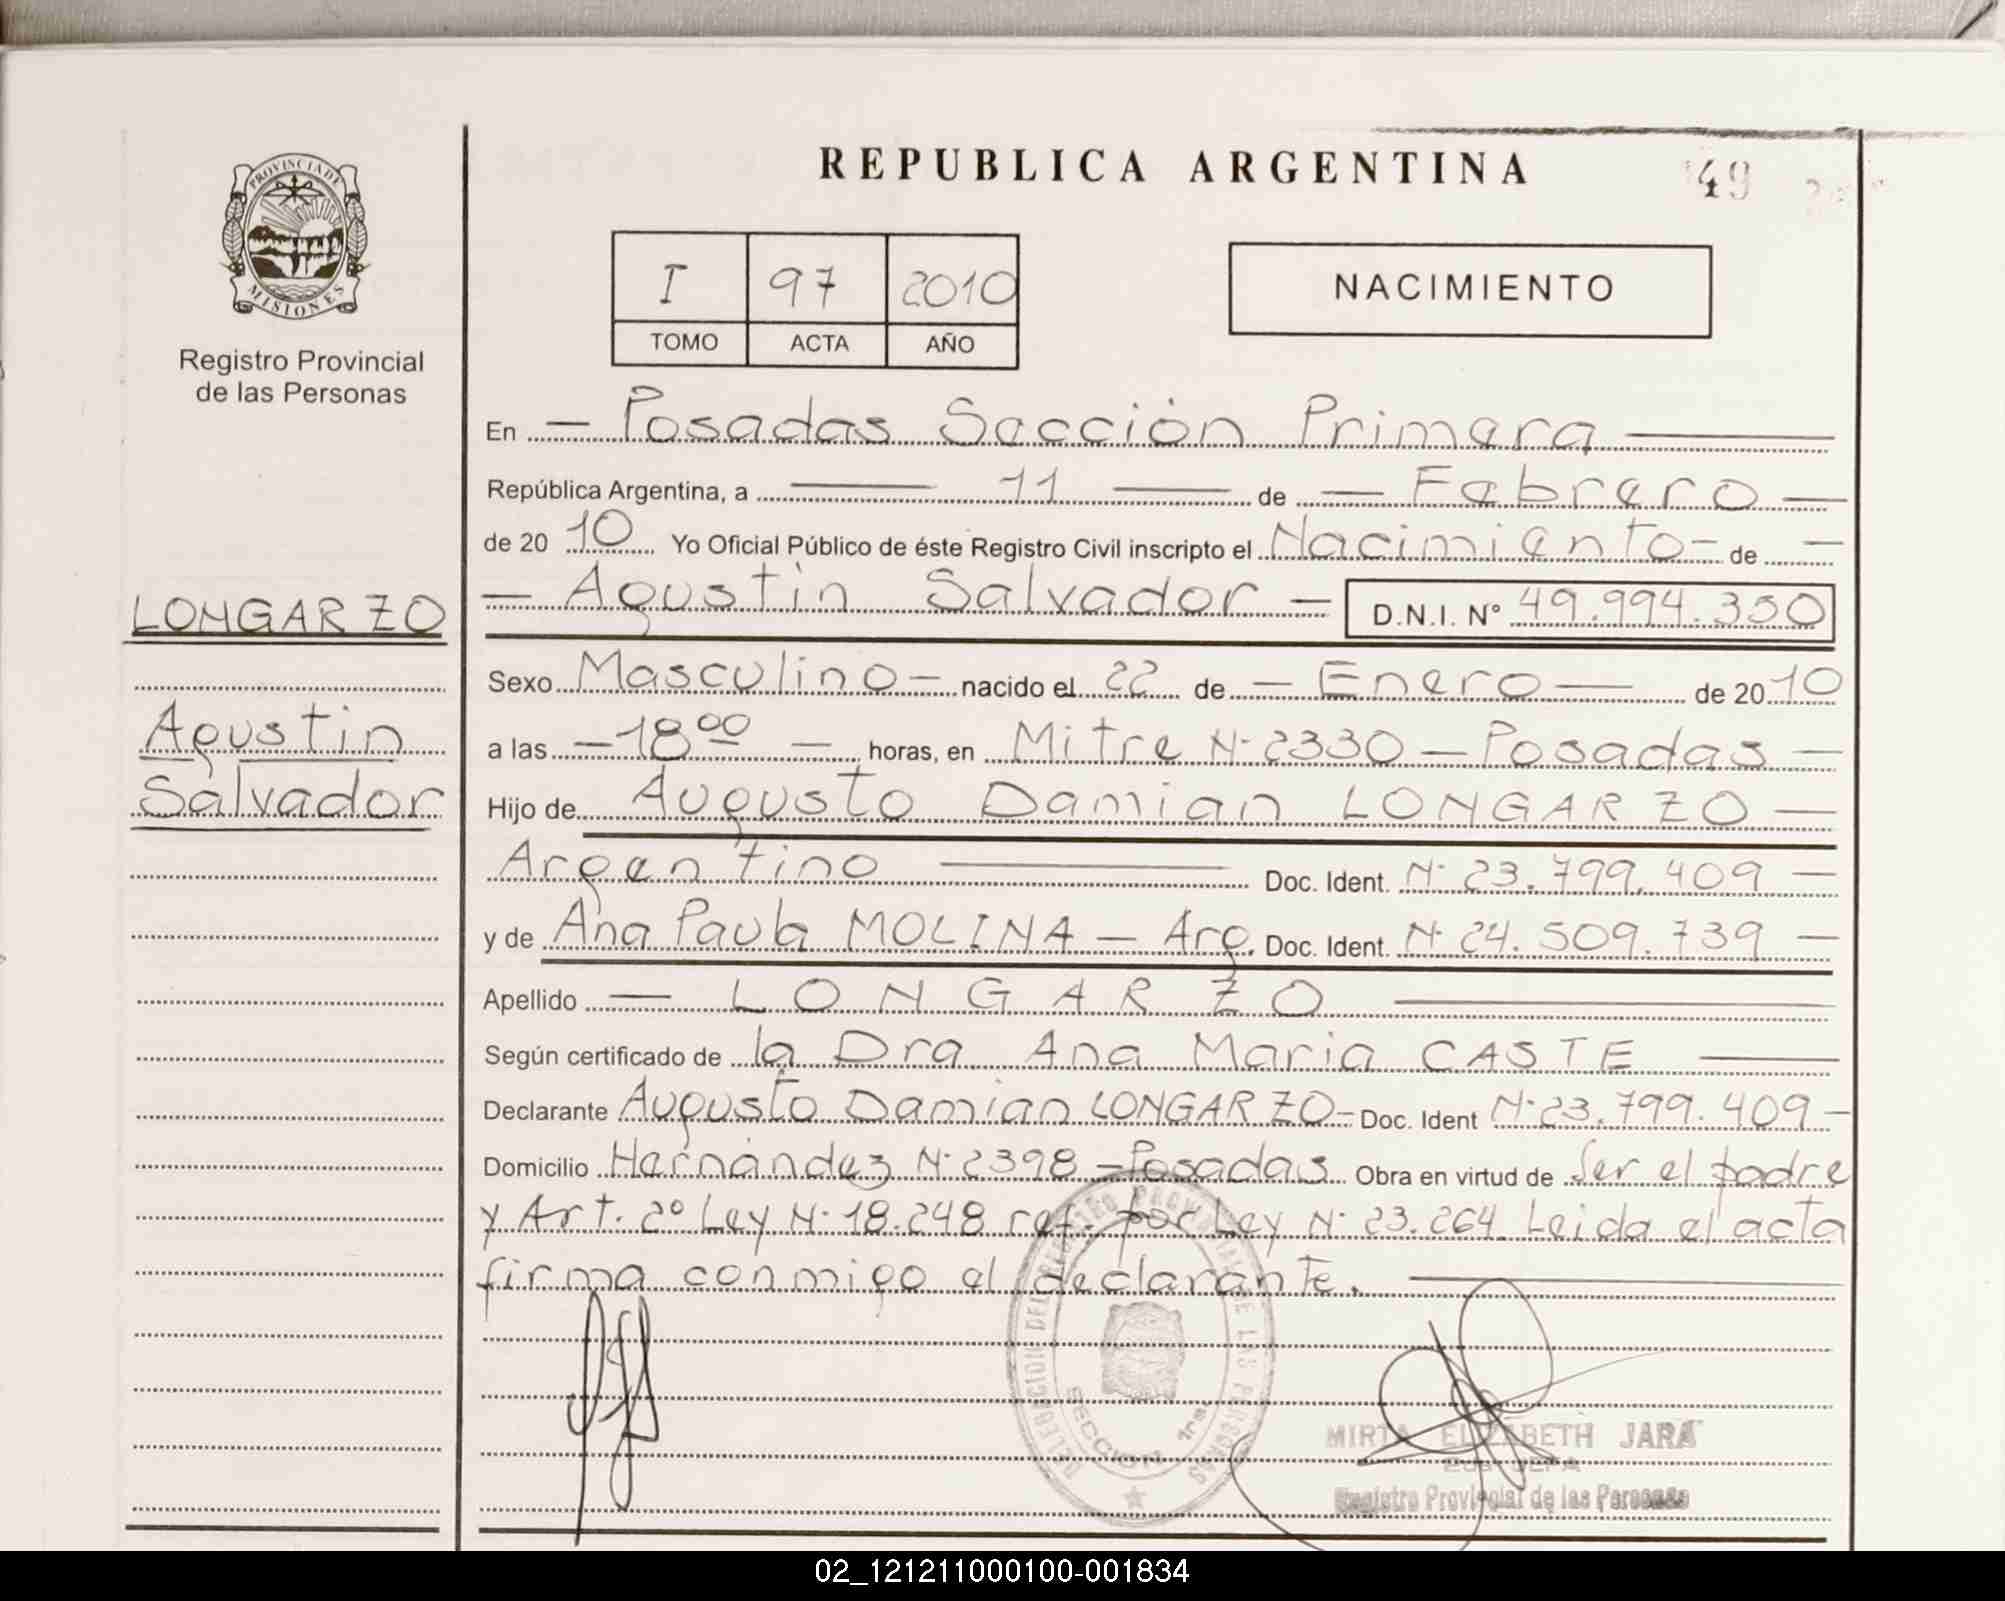 REPUBLICA ARGENTINA
49
PROVINCIA DE
MISIONES
Registro Provincial
de las Personas
I 97 2010
TOMO ACTA AÑO
NACIMIENTO
En — Posadas Sección Primera —
República Argentina, a — 11 — de — Febrero —
de 20 10 Yo Oficial Público de éste Registro Civil inscripto el Nacimiento - de —
LONGARZO
— Agustin Salvador — D.N.I. N° 49.994.350
Sexo Masculino — nacido el 22 de — Enero — de 20 10
Agustin
a las — 18 00 — horas, en Mitre N· 2330 — Posadas —
Salvador
Hijo de Augusto Damian LONGARZO —
Argentino — Doc. Ident. N· 23.799.409 —
y de Ana Paula MOLINA — Arg. Doc. Ident. N· 24.509.739 —
Apellido — LONGARZO —
Según certificado de la Dra. Ana Maria CASTE —
Declarante Augusto Damian LONGARZO - Doc. Ident N· 23.799.409 —
Domicilio Hernández N· 2398 - Posadas Obra en virtud de Ser el padre
y Art. 2° Ley N· 18.248 ref. por Ley N· 23.264. Leida el acta
firma conmigo el declarante. —
DELEGACION DEL REGISTRO PROVINCIAL DE LAS PERSONAS
SECCION 1ra
MIRTA ELIZABETH JARA
JEFA
Registro Provincial de las Personas
02_121211000100-001834